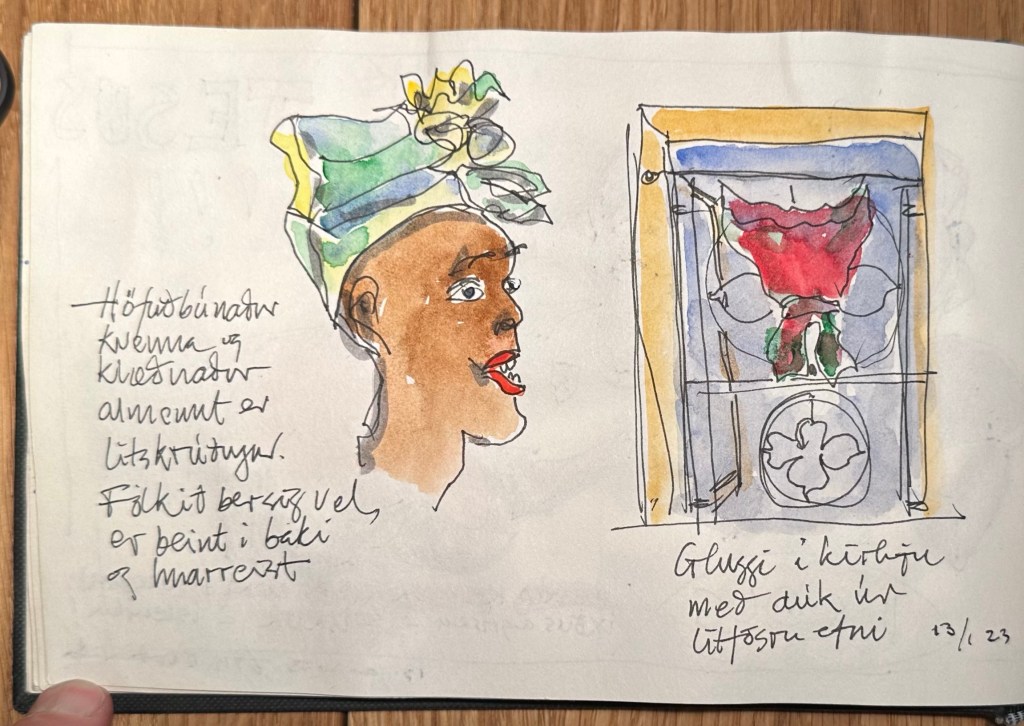 Höfuðbúnaður
kvenna og
klæðnaður
almennt er
litskrúðugur.
Fólkið ber sig vel,
er beint í baki
og hnarreist
Gluggi í kirkju
með dúk úr
litfögru efni
13/1 23